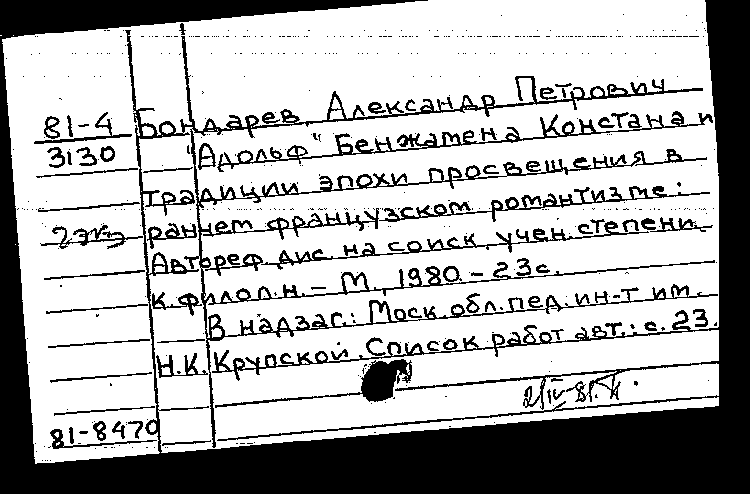 81-4 Бондарев, Александр Петрович
3130 "Адольф" Бенжамена Констана и
традиции эпохи просвещения в
2 экз раннем французском романтизме:
Автореф. дис. на соиск. учен. степени
к. филол. н. - М., 1980. - 23 с.
В надзаг.: Моск. обл. пед. ин-т им.
Н.К. Крупской. Список работ авт.: с. 23.
81-8470